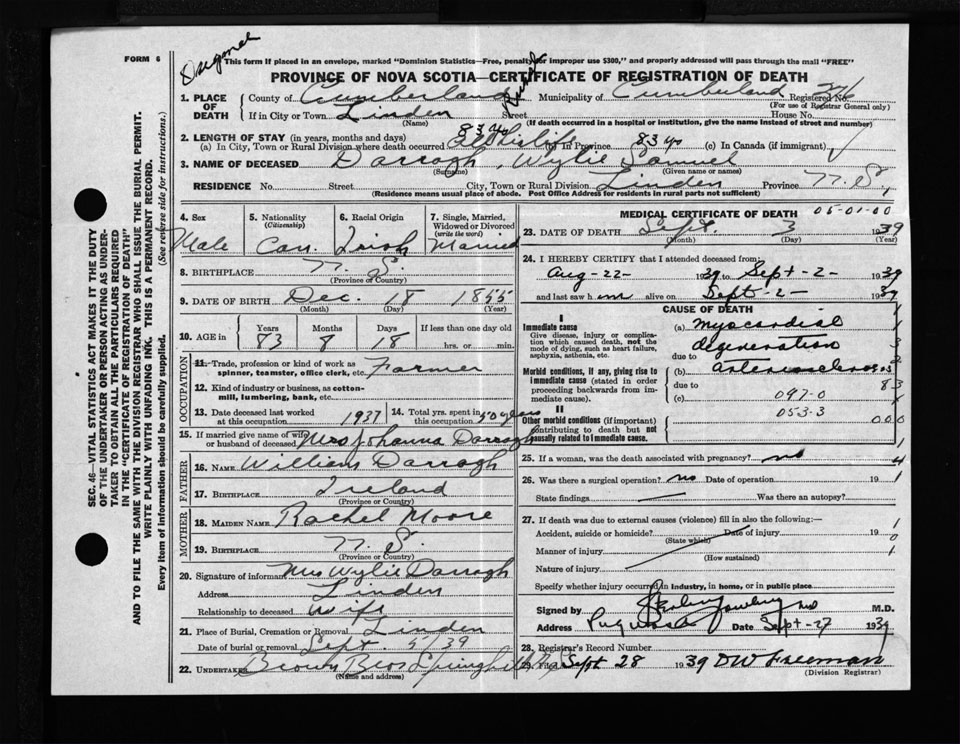 FORM 6
Original
This form if placed in an envelope, marked "Dominion Statistics—Free, penalty for improper use $300," and properly addressed will pass through the mail "FREE"
PROVINCE OF NOVA SCOTIA—CERTIFICATE OF REGISTRATION OF DEATH
1. PLACE OF DEATH
County of Cumberland Municipality of Cumberland Registered No.
(For use of Registrar General only)
If in City or Town Linden Street House No.
(Name) (If death occurred in a hospital or institution, give name instead of street and number)
2. LENGTH OF STAY (in years, months and days)
(a) In City, Town or Rural Division where death occurred 83 yrs All his life (b) In Province 83 yrs (c) In Canada (if immigrant)
3. NAME OF DECEASED Darragh, Wylie Samuel
(Surname) (Given name or names)
RESIDENCE No. Street City, Town or Rural Division Linden Province N. S.
(Residence means usual place of abode. Post Office Address for residents in rural parts not sufficient)
4. Sex Male
5. Nationality (Citizenship) Can.
6. Racial Origin Irish
7. Single, Married, Widowed or Divorced (write the word) Married
8. BIRTHPLACE N. S.
(Province or Country)
9. DATE OF BIRTH Dec. 18 1855
(Month) (Day) (Year)
10. AGE in Years Months Days If less than one day old
83 8 18 hrs. or min.
OCCUPATION
11. Trade, profession or kind of work as spinner, teamster, office clerk, etc. Farmer
12. Kind of industry or business, as cotton-mill, lumbering, bank, etc.
13. Date deceased last worked at this occupation 1937 14. Total yrs. spent in this occupation 50 years
15. If married give name of wife or husband of deceased Mrs Johanna Darragh
FATHER
16. NAME William Darragh
17. BIRTHPLACE Ireland
(Province or Country)
MOTHER
18. MAIDEN NAME Rachel Moore
19. BIRTHPLACE N. S.
(Province or Country)
20. Signature of informant Mrs Wylie Darragh
Address Linden
Relationship to deceased wife
21. Place of Burial, Cremation or Removal Linden
Date of burial or removal Sept. 5/39
22. UNDERTAKER Brown Bros Springhill N.S.
(Name and address)
MEDICAL CERTIFICATE OF DEATH 05-01-00
23. DATE OF DEATH Sept. 3 1939
(Month) (Day) (Year)
24. I HEREBY CERTIFY that I attended deceased from:
Aug-22- 1939 to Sept-2- 1939
and last saw him alive on Sept-2- 1939
CAUSE OF DEATH
I
Immediate cause
Give disease, injury or complication which caused death, not the mode of dying, such as heart failure, asphyxia, asthenia, etc.
(a) Myocardial degeneration
due to
Morbid conditions, if any, giving rise to immediate cause (stated in order proceeding backwards from immediate cause).
(b) Arteriosclerosis
due to
(c) 097-0
053-3
II
Other morbid conditions (if important) contributing to death but not causally related to immediate cause.
25. If a woman, was the death associated with pregnancy? no
26. Was there a surgical operation? no Date of operation 19
State findings Was there an autopsy?
27. If death was due to external causes (violence) fill in also the following:—
Accident, suicide or homicide? Date of injury 19
(State which)
Manner of injury
(How sustained)
Nature of injury
Specify whether injury occurred in industry, in home, or in public place
Signed by M.D.
Address Pugwash Date Sept-27 1939
28. Registrar's Record Number
29. Filed Sept 28 1939 DW Freeman
(Division Registrar)
SEC. 46—VITAL STATISTICS ACT MAKES IT THE DUTY
OF THE UNDERTAKER OR PERSON ACTING AS UNDER-
TAKER TO OBTAIN ALL THE PARTICULARS REQUIRED
IN THE "CERTIFICATE OF REGISTRATION OF DEATH"
AND TO FILE THE SAME WITH THE DIVISION REGISTRAR WHO SHALL ISSUE THE BURIAL PERMIT.
WRITE PLAINLY WITH UNFADING INK. THIS IS A PERMANENT RECORD.
Every item of information should be carefully supplied. (See reverse side for instructions.)